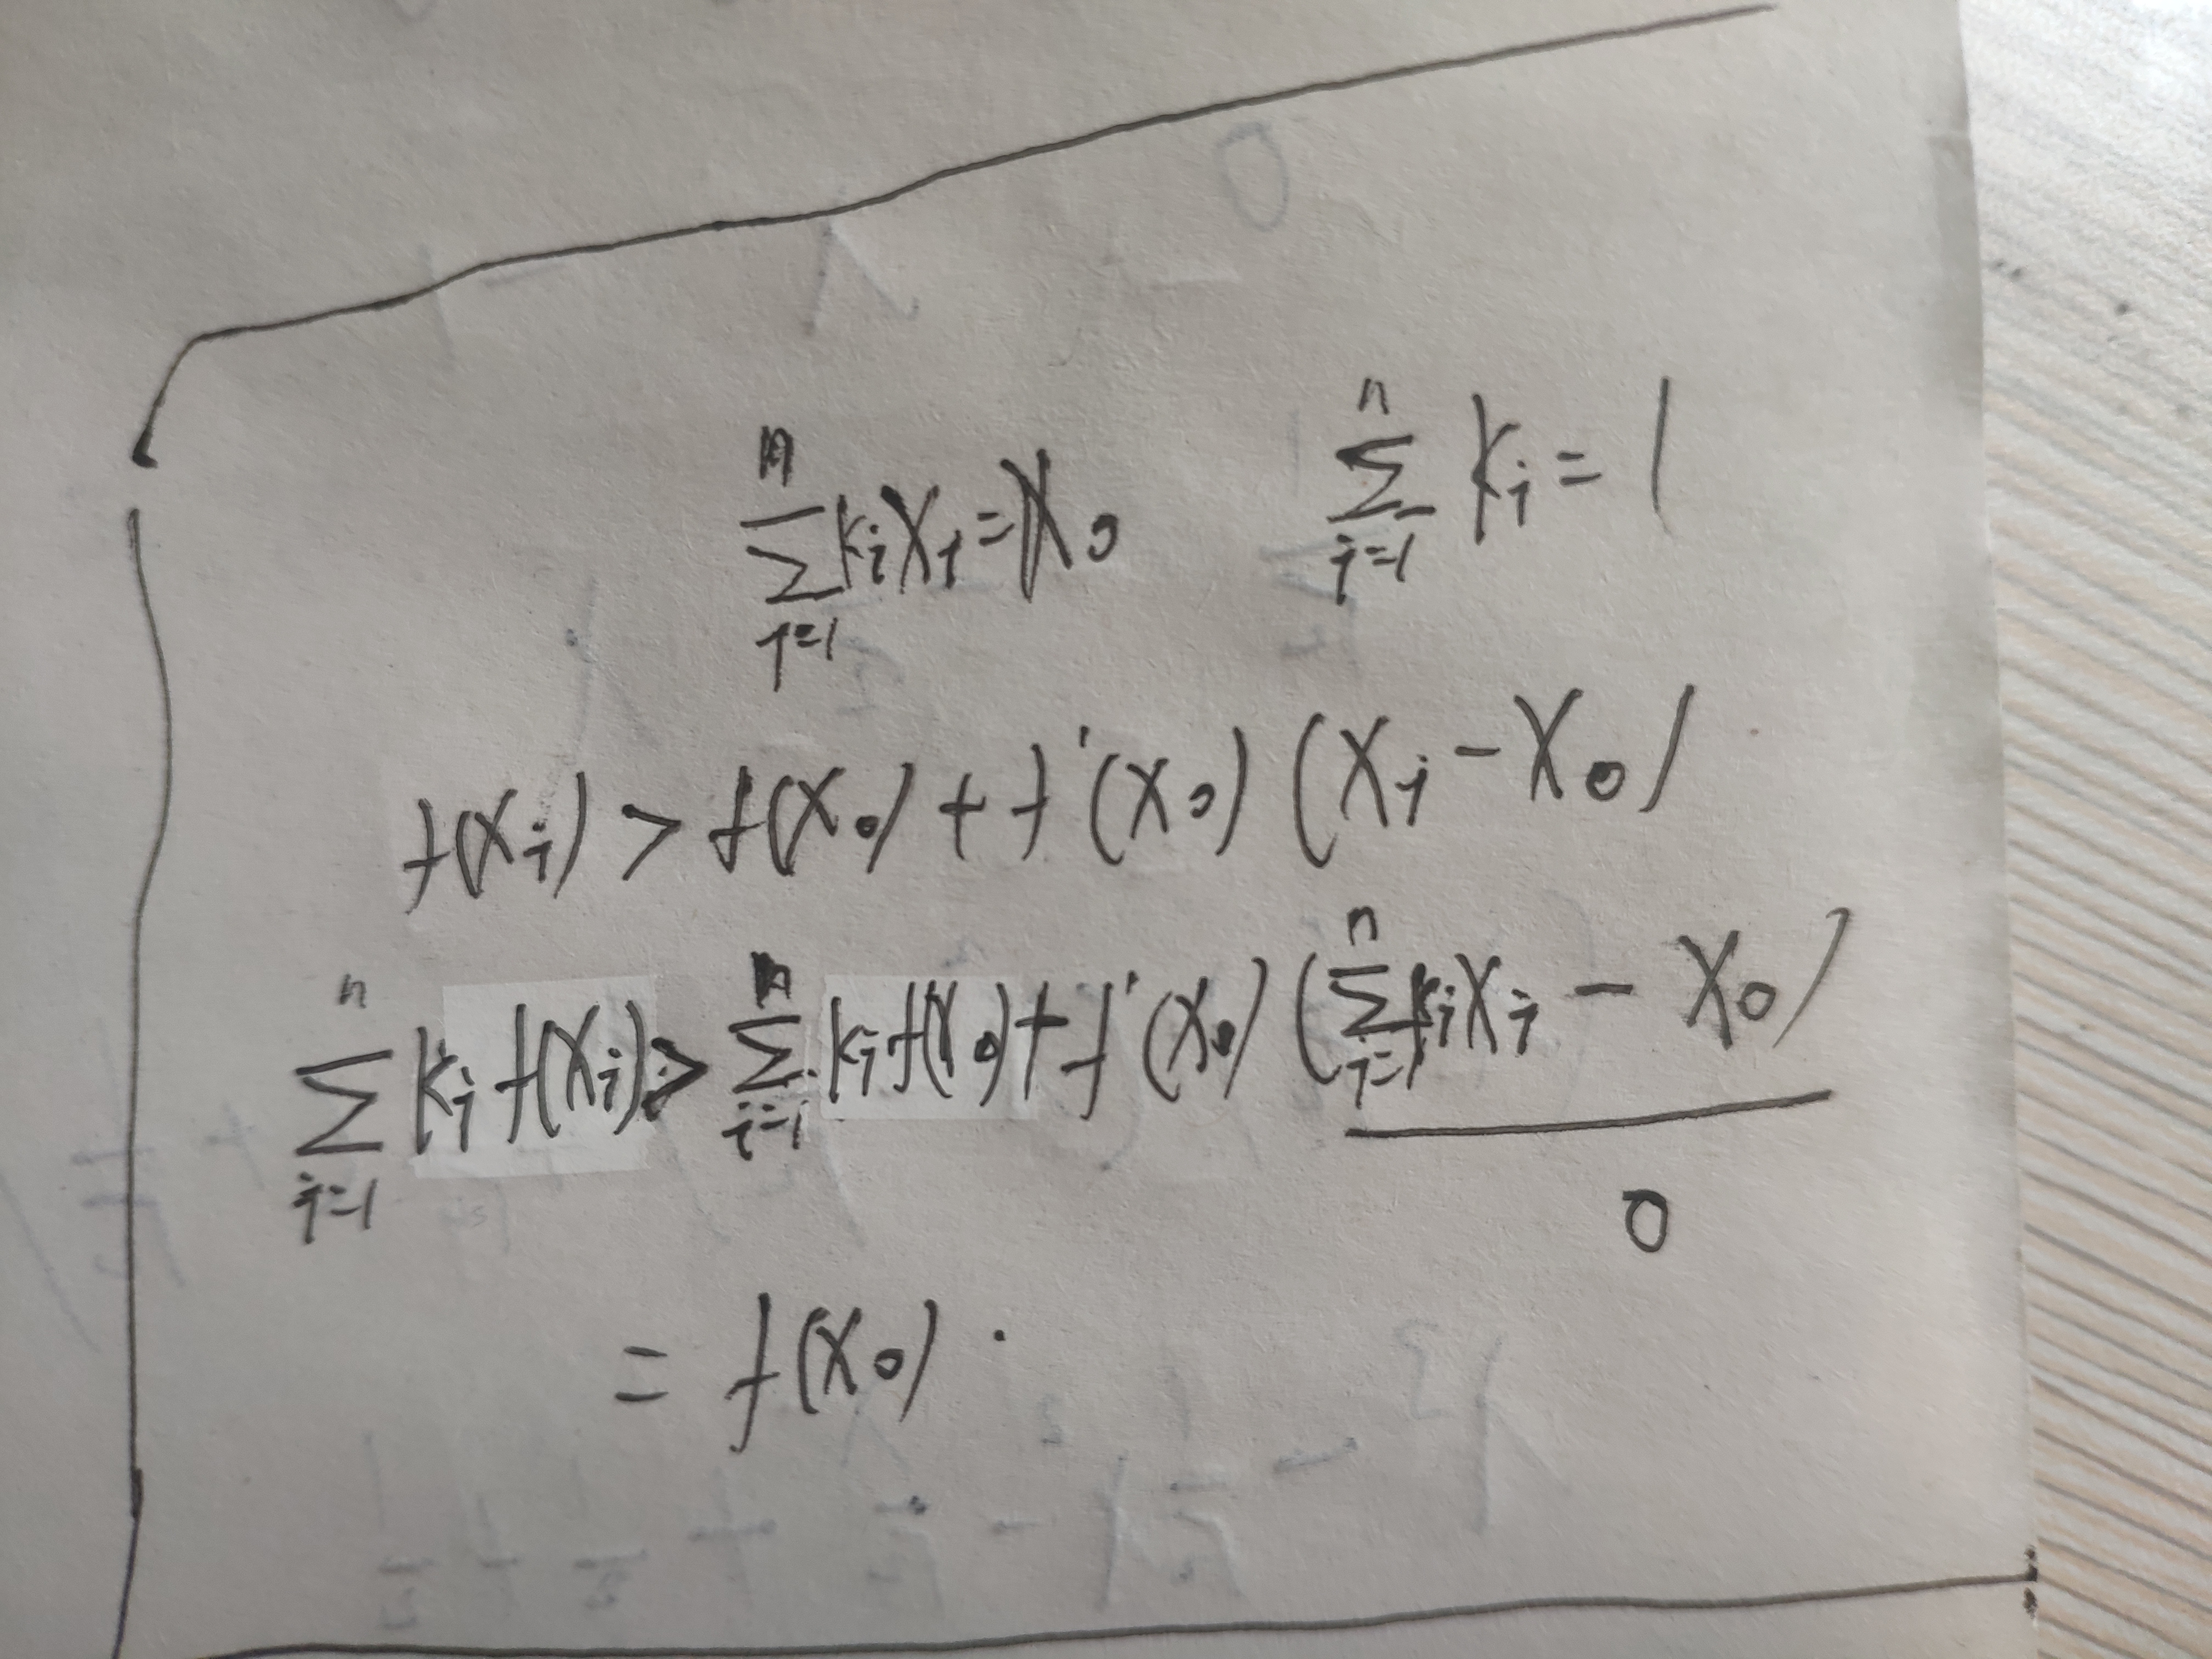 \sum_{i=1}^{n} k_i x_i = x_0    \sum_{i=1}^{n} k_i = 1
f(x_i) > f(x_0) + f'(x_0) (x_i - x_0)
\sum_{i=1}^{n} k_i f(x_i) > \sum_{i=1}^{n} k_i f(x_0) + f'(x_0) (\sum_{i=1}^{n} k_i x_i - x_0)
0
= f(x_0) .